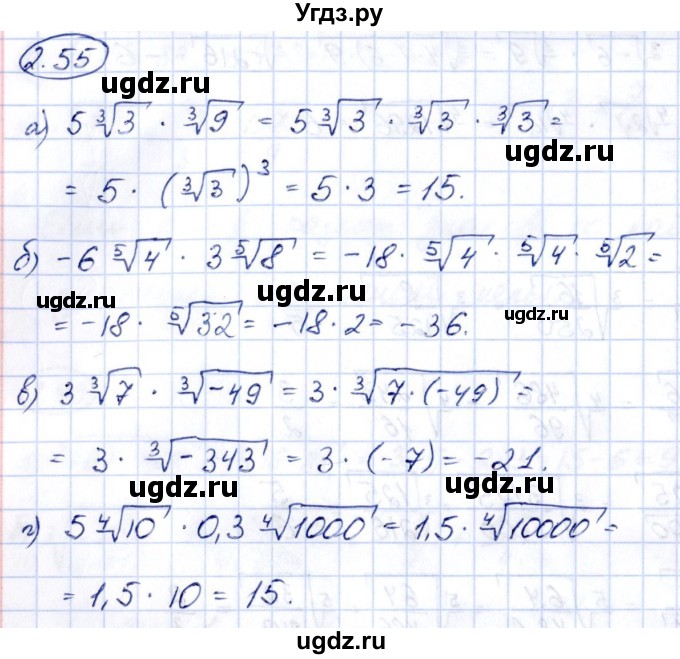 Угдз.ру
2.55
ugdz.ru
а) 5∛3 · ∛9 = 5∛3 · ∛3 · ∛3 =
ugdz.ru
ugdz.ru
= 5 · (∛3)³ = 5 · 3 = 15.
б) -6 ⁵√4 · 3 ⁵√8 = -18 · ⁵√4 · ⁵√4 · ⁵√2 =
ugdz.ru
ugdz.ru
ugdz.ru
= -18 · ⁵√32 = -18 · 2 = -36.
в) 3∛7 · ∛-49 = 3 · ∛7·(-49) =
= 3 · ∛-343 = 3 · (-7) = -21.
ugdz.ru
ugdz.ru
г) 5 ⁴√10 · 0,3 ⁴√1000 = 1,5 · ⁴√10000 =
= 1,5 · 10 = 15.
ugdz.ru
ugdz.ru